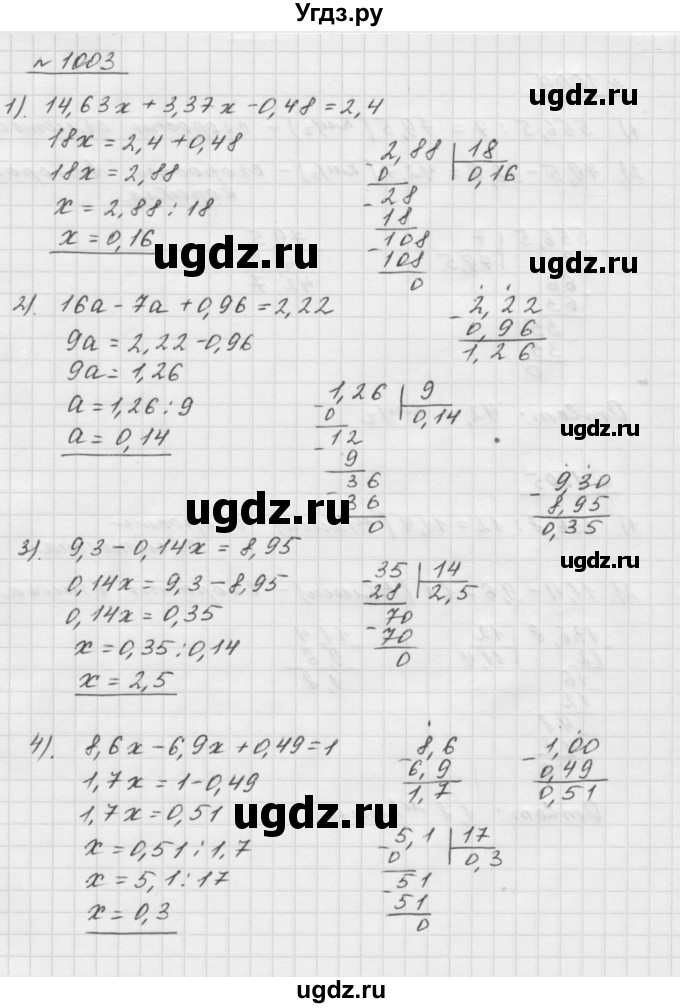 Угдз.ру
№ 1003
1). 14,63x + 3,37x - 0,48 = 2,4
18x = 2,4 + 0,48
18x = 2,88
x = 2,88 : 18
x = 0,16
- 2,88 | 18
0 | 0,16
- 28
18
- 108
108
0
ugdz.ru
ugdz.ru
ugdz.ru
2). 16a - 7a + 0,96 = 2,22
9a = 2,22 - 0,96
9a = 1,26
a = 1,26 : 9
a = 0,14
- 2,22
0,96
1,26
- 1,26 | 9
0 | 0,14
- 12
9
36
- 36
0
ugdz.ru
ugdz.ru
ugdz.ru
- 9,30
8,95
0,35
3). 9,3 - 0,14x = 8,95
0,14x = 9,3 - 8,95
0,14x = 0,35
x = 0,35 : 0,14
x = 2,5
- 35 | 14
28 | 2,5
- 70
70
0
ugdz.ru
ugdz.ru
4). 8,6x - 6,9x + 0,49 = 1
1,7x = 1 - 0,49
1,7x = 0,51
x = 0,51 : 1,7
x = 5,1 : 17
x = 0,3
- 8,6
6,9
1,7
- 1,00
0,49
0,51
- 5,1 | 17
0 | 0,3
- 51
51
0
ugdz.ru
ugdz.ru
ugdz.ru
ugdz.ru